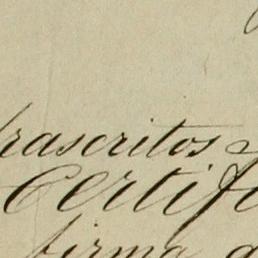 frascritos
Certif
firma